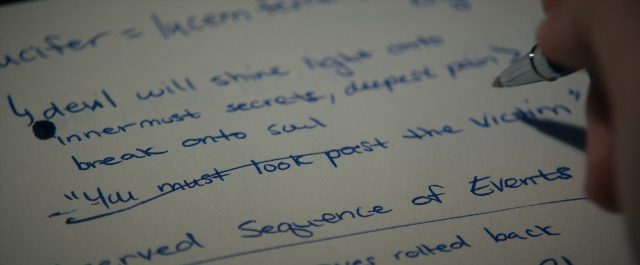 ucifer = lucem
↳ devil will shine light onto
innermost secrets, deepest pain?
break onto soul
- "You must look past the victim"
erved Sequence of Events
rolled back